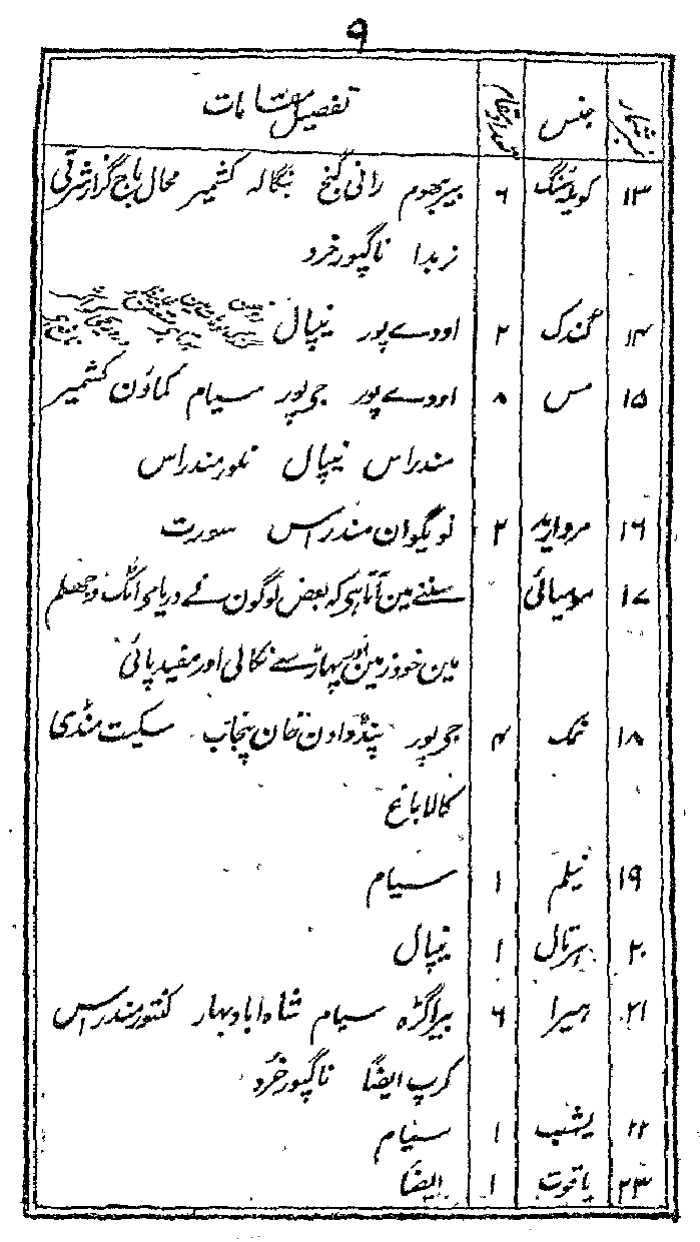 ۹
نمبر شمار جنس تعداد مقام تفصیل مقامات
۱۳ کویلہ سنگ ۶ بیربھوم رانی گنج بنگالہ کشمیر محال باج گزار شرقی
نربدا ناگپور خرد
۱۴ گندک ۲ اودے پور نیپال
۱۵ مس ۸ اودے پور جی پور سیام کماؤن کشمیر
مندراس نیپال نلور مندراس
۱۶ مروارید ۲ لویگوان مندراس سورت
۱۷ مومیائی سننے مین آتا ہی کہ بعض لوگون نے دریای اٹک و جھلم
مین خود زمین اور پہاڑ سے نکالی اور مفید پائی
۱۸ نمک ۴ جی پور پنڈدادن خان پنجاب سکیت منڈی
کالا باغ
۱۹ نیلم ۱ سیام
۲۰ ہرتال ۱ نیپال
۲۱ ہیرا ۶ بیراگڑہ سیام شاہ اباد بہار کنتور مندراس
کرپ ایضاً ناگپور خرد
۲۲ یشب ۱ سیام
۲۳ یاقوت ۱ ایضاً